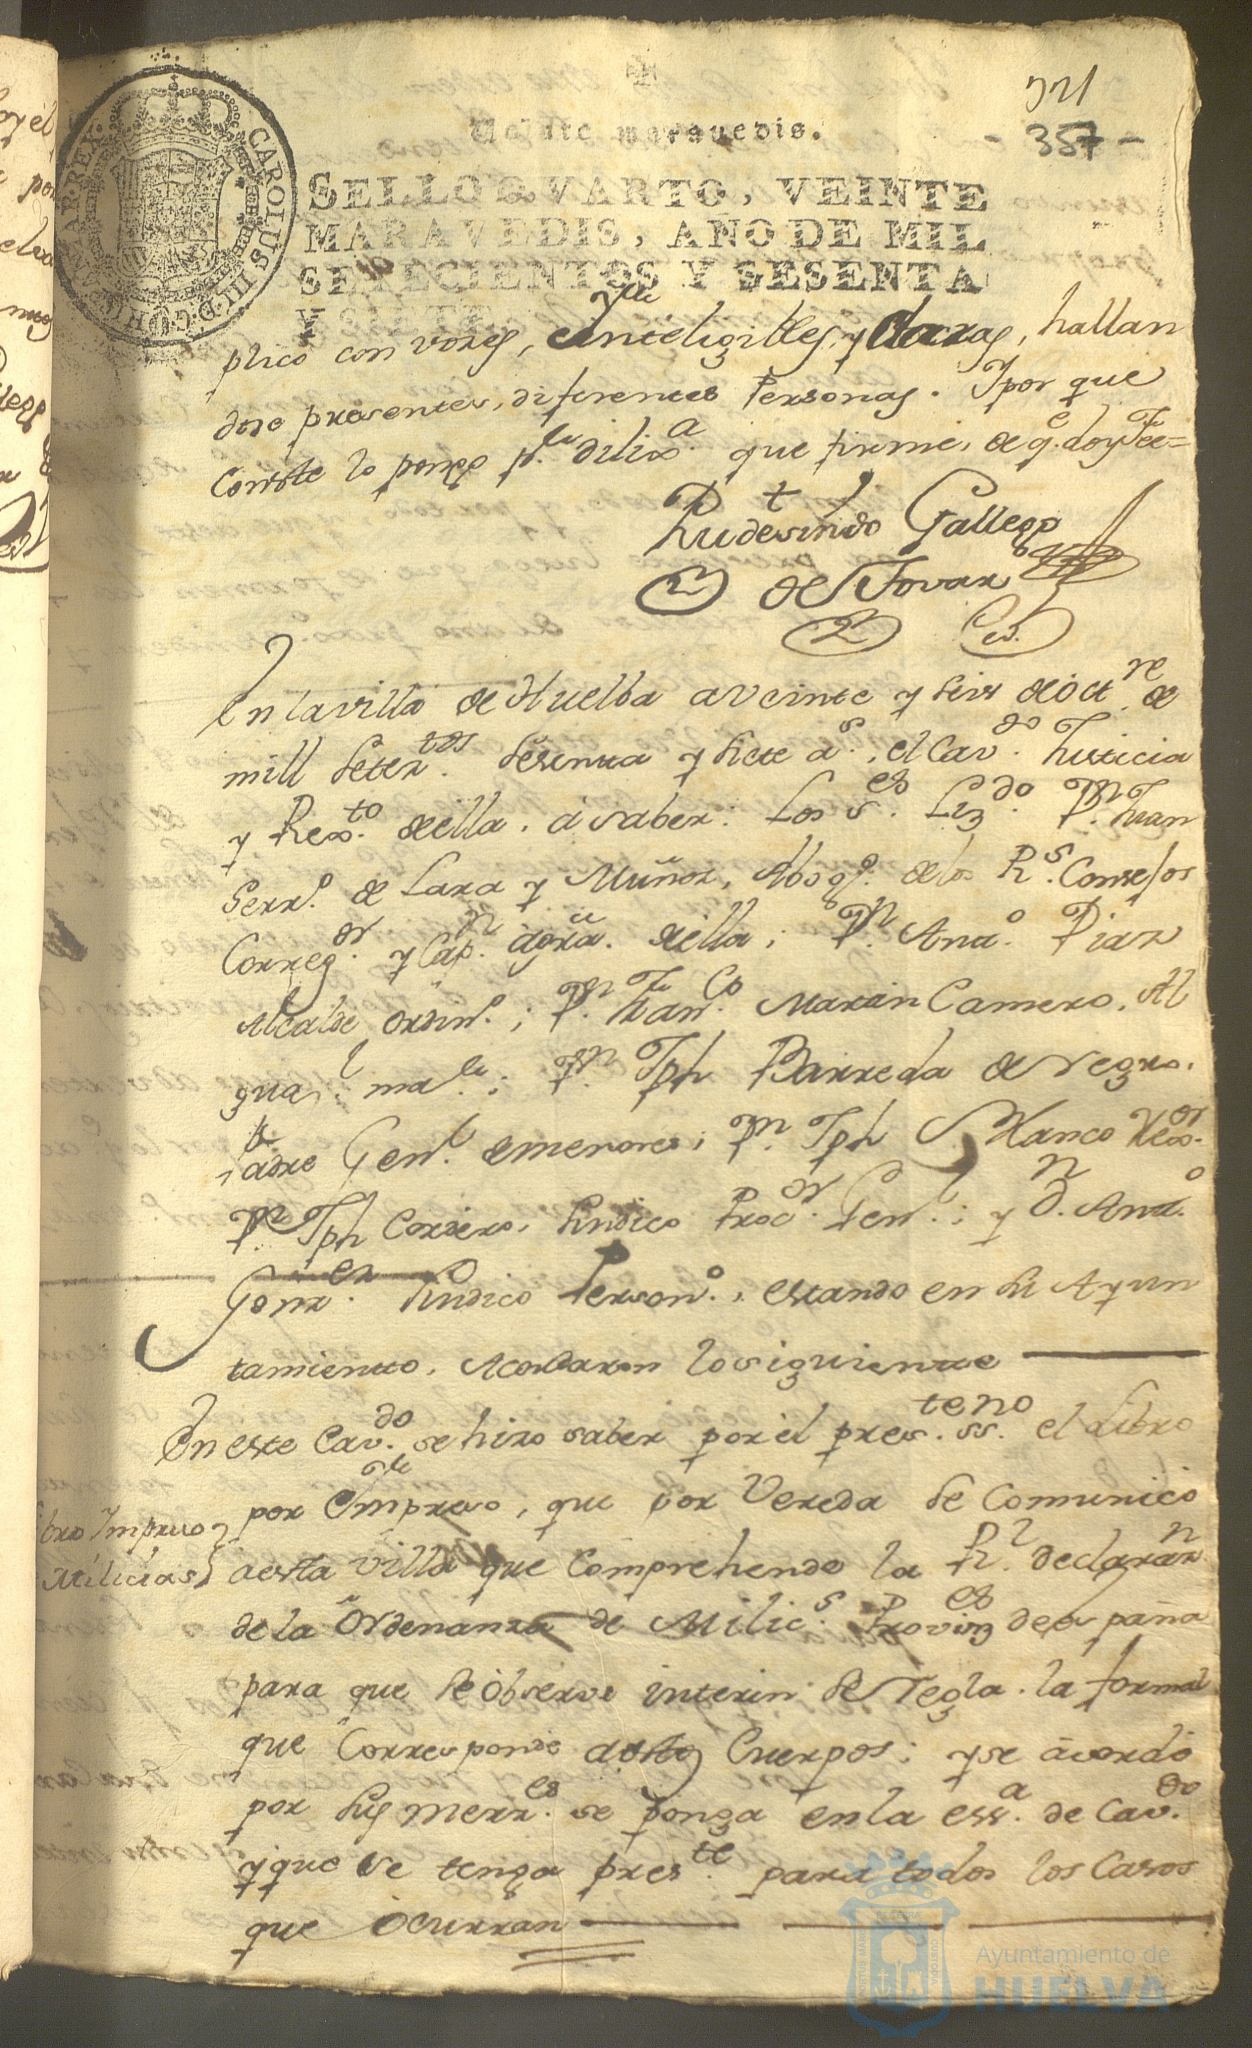 521
- 357 -
Veinte maravedis.
SELLO QVARTO, VEINTE
MARAVEDIS, AÑO DE MIL
SETECIENTOS Y SESENTA
Y SIETE.
CAROLUS III D G HISPANIAR REX
plico con vozes, inteligibles, y claras, hallan
dose presentes, diferentes Personas. Y por que
Conste lo pongo p.r dilix.a que firmé, de q.e doy Fee=
Rudesindo Gallego
de Tovar
es.
En la villa de Huelba a veinte y seis de oct.re de
mill setez.tos sesenta y siete a.s, el Cav.do Justicia
y Rex.to de ella, â saber: Los S.es Liz.do D.n Juan
Serr.o de Lara y Muñoz, Abog.o de los R.s Consejos
Correg.or y Cap.n âgrã. de ella; D.n And.o Diaz
Alcalde ordin.o; D.n Fran.co Martin Camero, Al
guaz.l ma.r; D.n Jph Barreda de Negro,
Padre Gen.l de menores; D.n Jph Blanco Rex.or
D.n Jph Cordero, Sindico Proc.or Gen.l; y D.n And.o
Gonz.ez Sindico Person.o, estando en su Ayun
tamiento, Acordaron lo siguiente
En este Cav.do se hizo saber por el pres.te no ss. el Libro
por Impreso, que por Vereda se Comunicó
Libro Impreso
Milicias
a esta villa que Comprehende la R.l declaraz.n
de la Ordenanza de Milic.s Provinz.es de españa
para que se observe interin se regla la formal
que Corresponde a estos Cuerpos; y se acordó
por sus merz.es se ponga en la ess.a de Cav.do
y que se tenga pres.te para todos los Casos
que ocurran
Ayuntamiento de
HUELVA